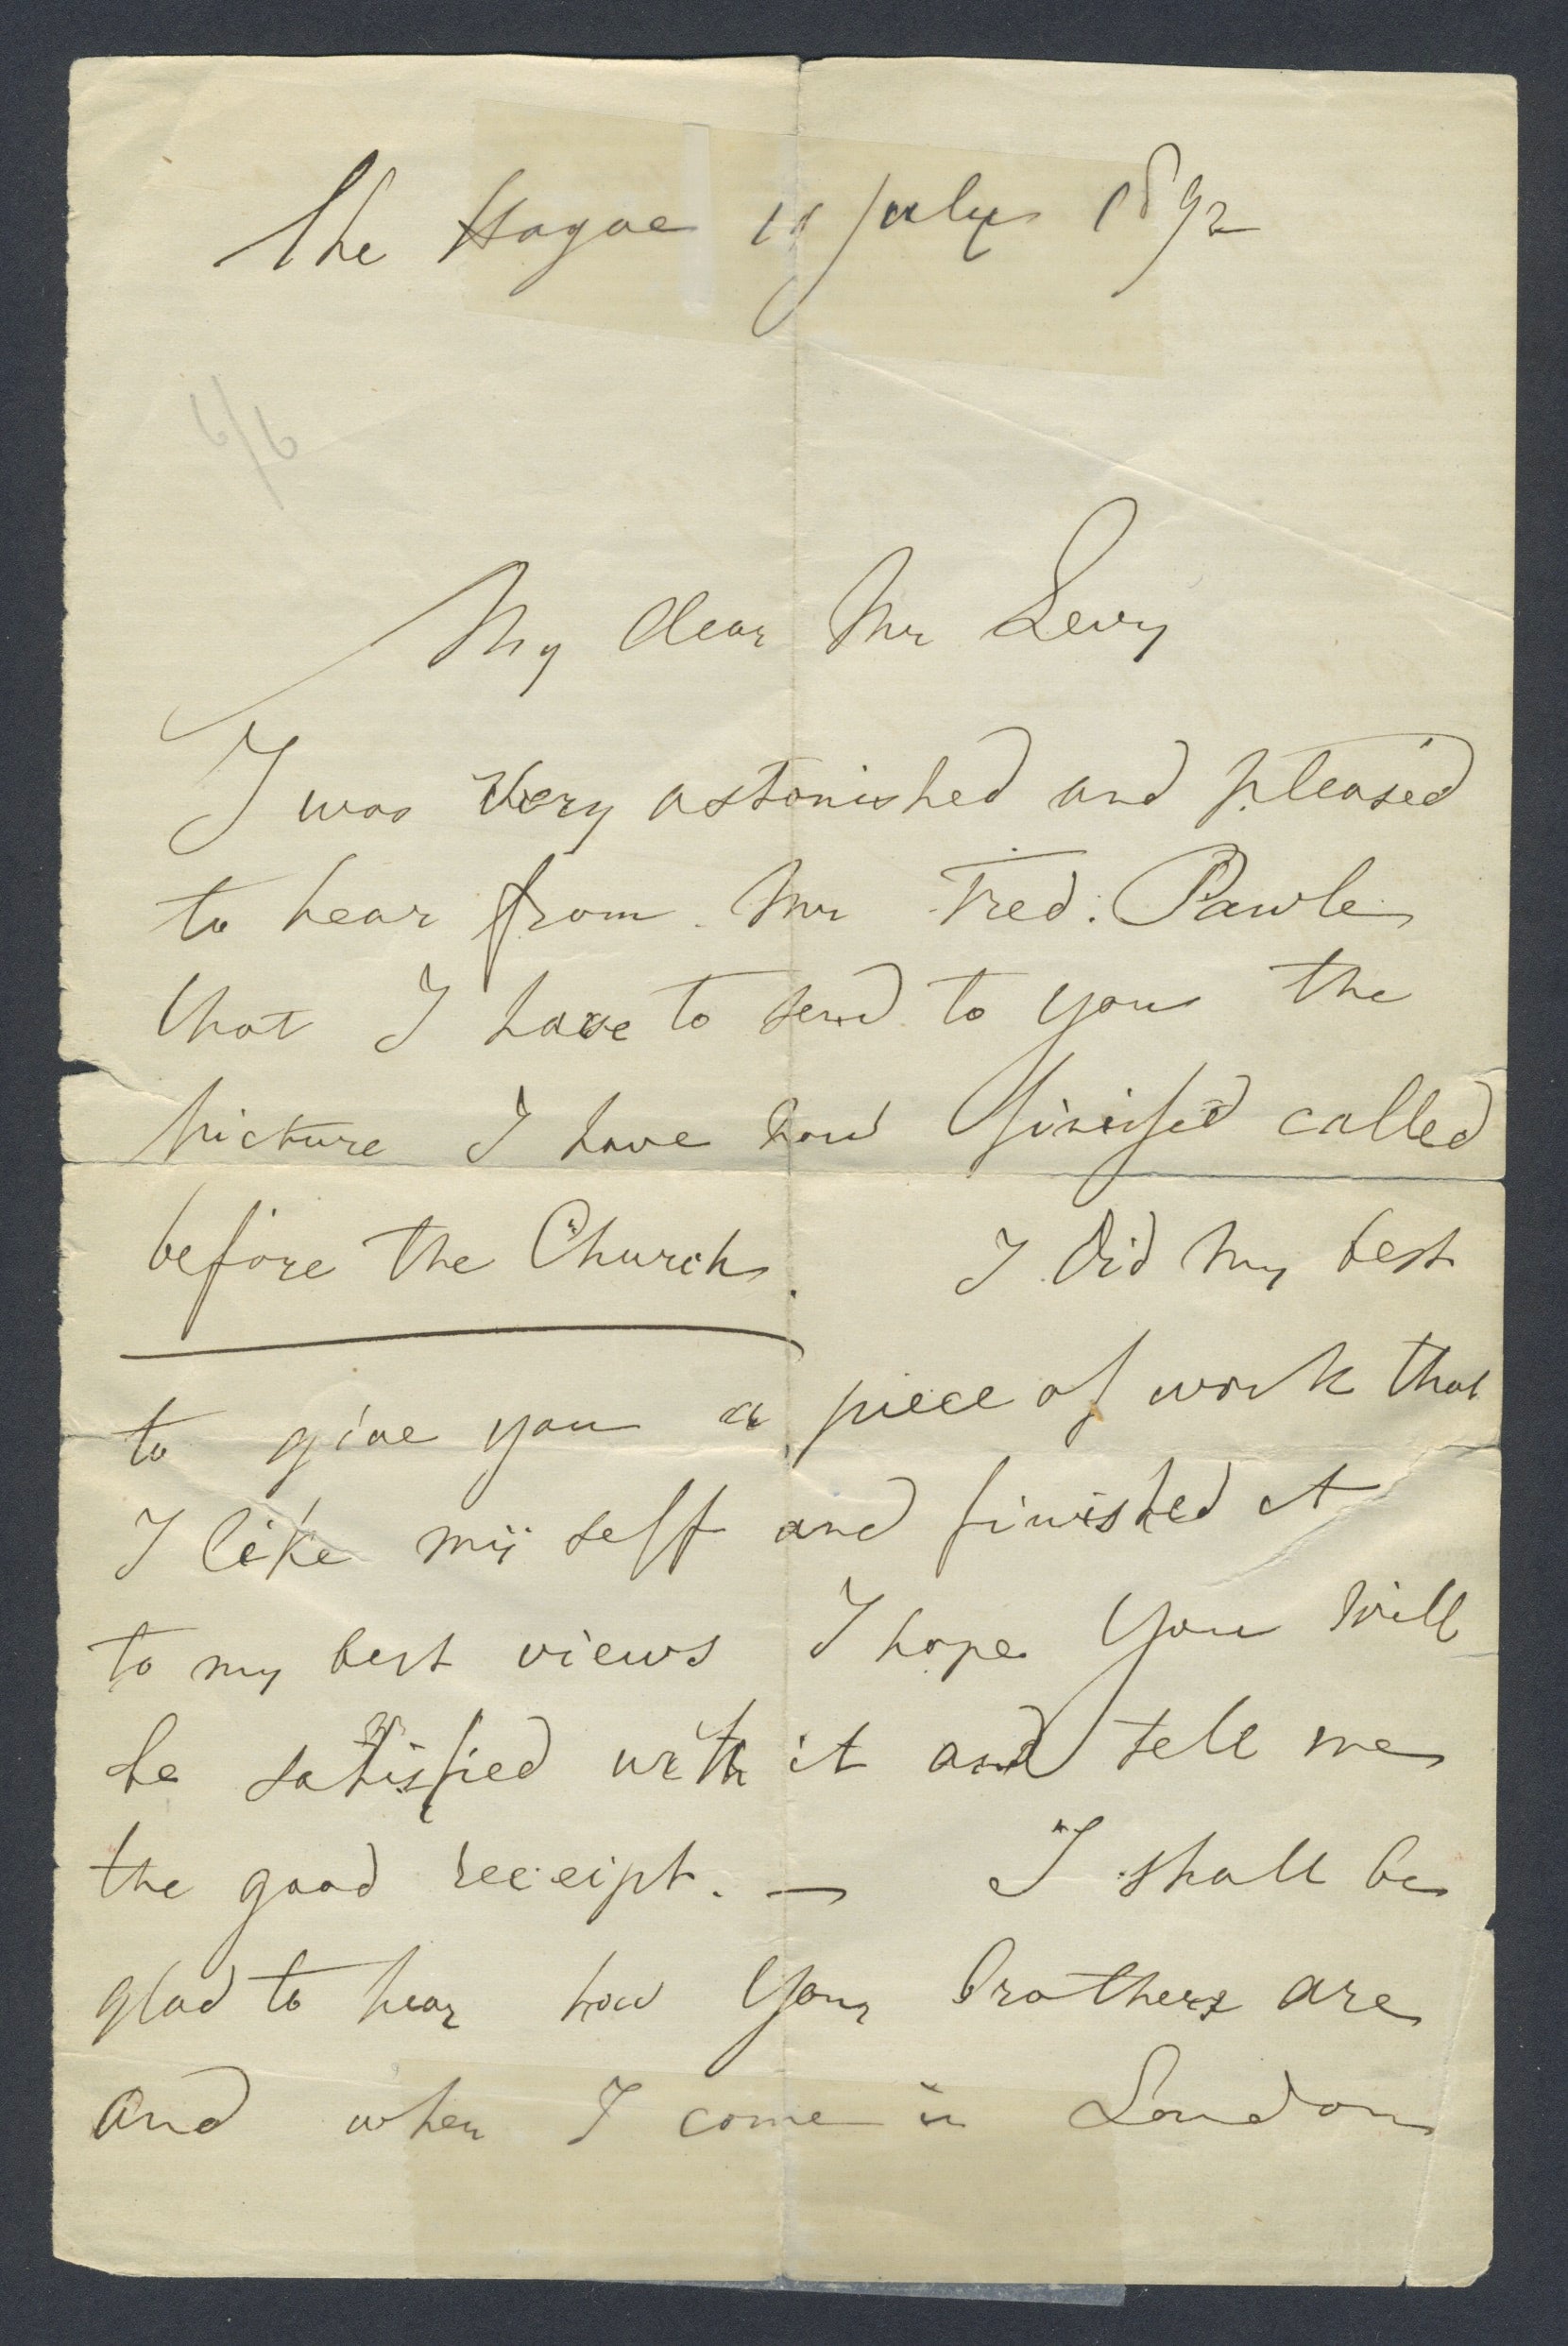 The Hague 19 july 1892
My dear Mr Levy
I was very astonished and pleased
to hear from Mr Fred. Pawle
that I have to send to you the
picture I have now finished called
before the Church. I did my best
to give you a piece of work that
I like mÿ self and finished it
to my best views I hope you will
be satisfied with it and tell me
the good receipt. — I shall be
glad to hear how your brothers are
and when I come in London